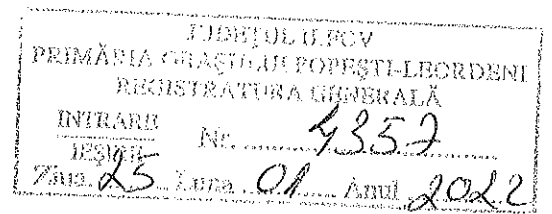 JUDEȚUL ILFOV
PRIMĂRIA ORAȘULUI POPEȘTI-LEORDENI
REGISTRATURA GENERALĂ
INTRARE
IEȘIRE
Nr. 4357
Ziua 25 Luna 01 Anul 2022